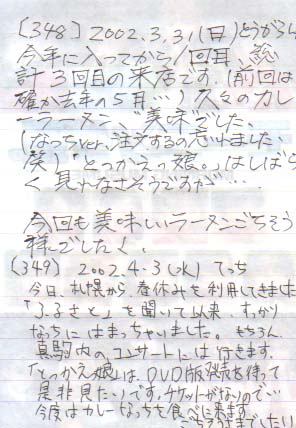 [348] 2002.3.31(日)とうがらし
今年に入ってから1回目、総
計3回目の来店です。(前回は
確か去年の5月…)久々のカレ
ーラーメン、美味でした
(なっちver.注文するの忘れました、
笑)「とっかえっ娘。」はしばら
く見れなさそうですが…
今回も美味しいラーメンごちそう
様でした。
[349] 2002.4.3(水) てっち
今日、札幌から、春休みを利用してきました
「ふるさと」を聞いて以来、すっかり
なっちにはまっちゃいました。もちろん、
真駒内のコンサートには行きます。
「とっかえ娘」は、DVD版発売を待って
是非見たいです。チケットがないので…
今度はカレーなっちを食べに来ます。
ごちそうさまでした